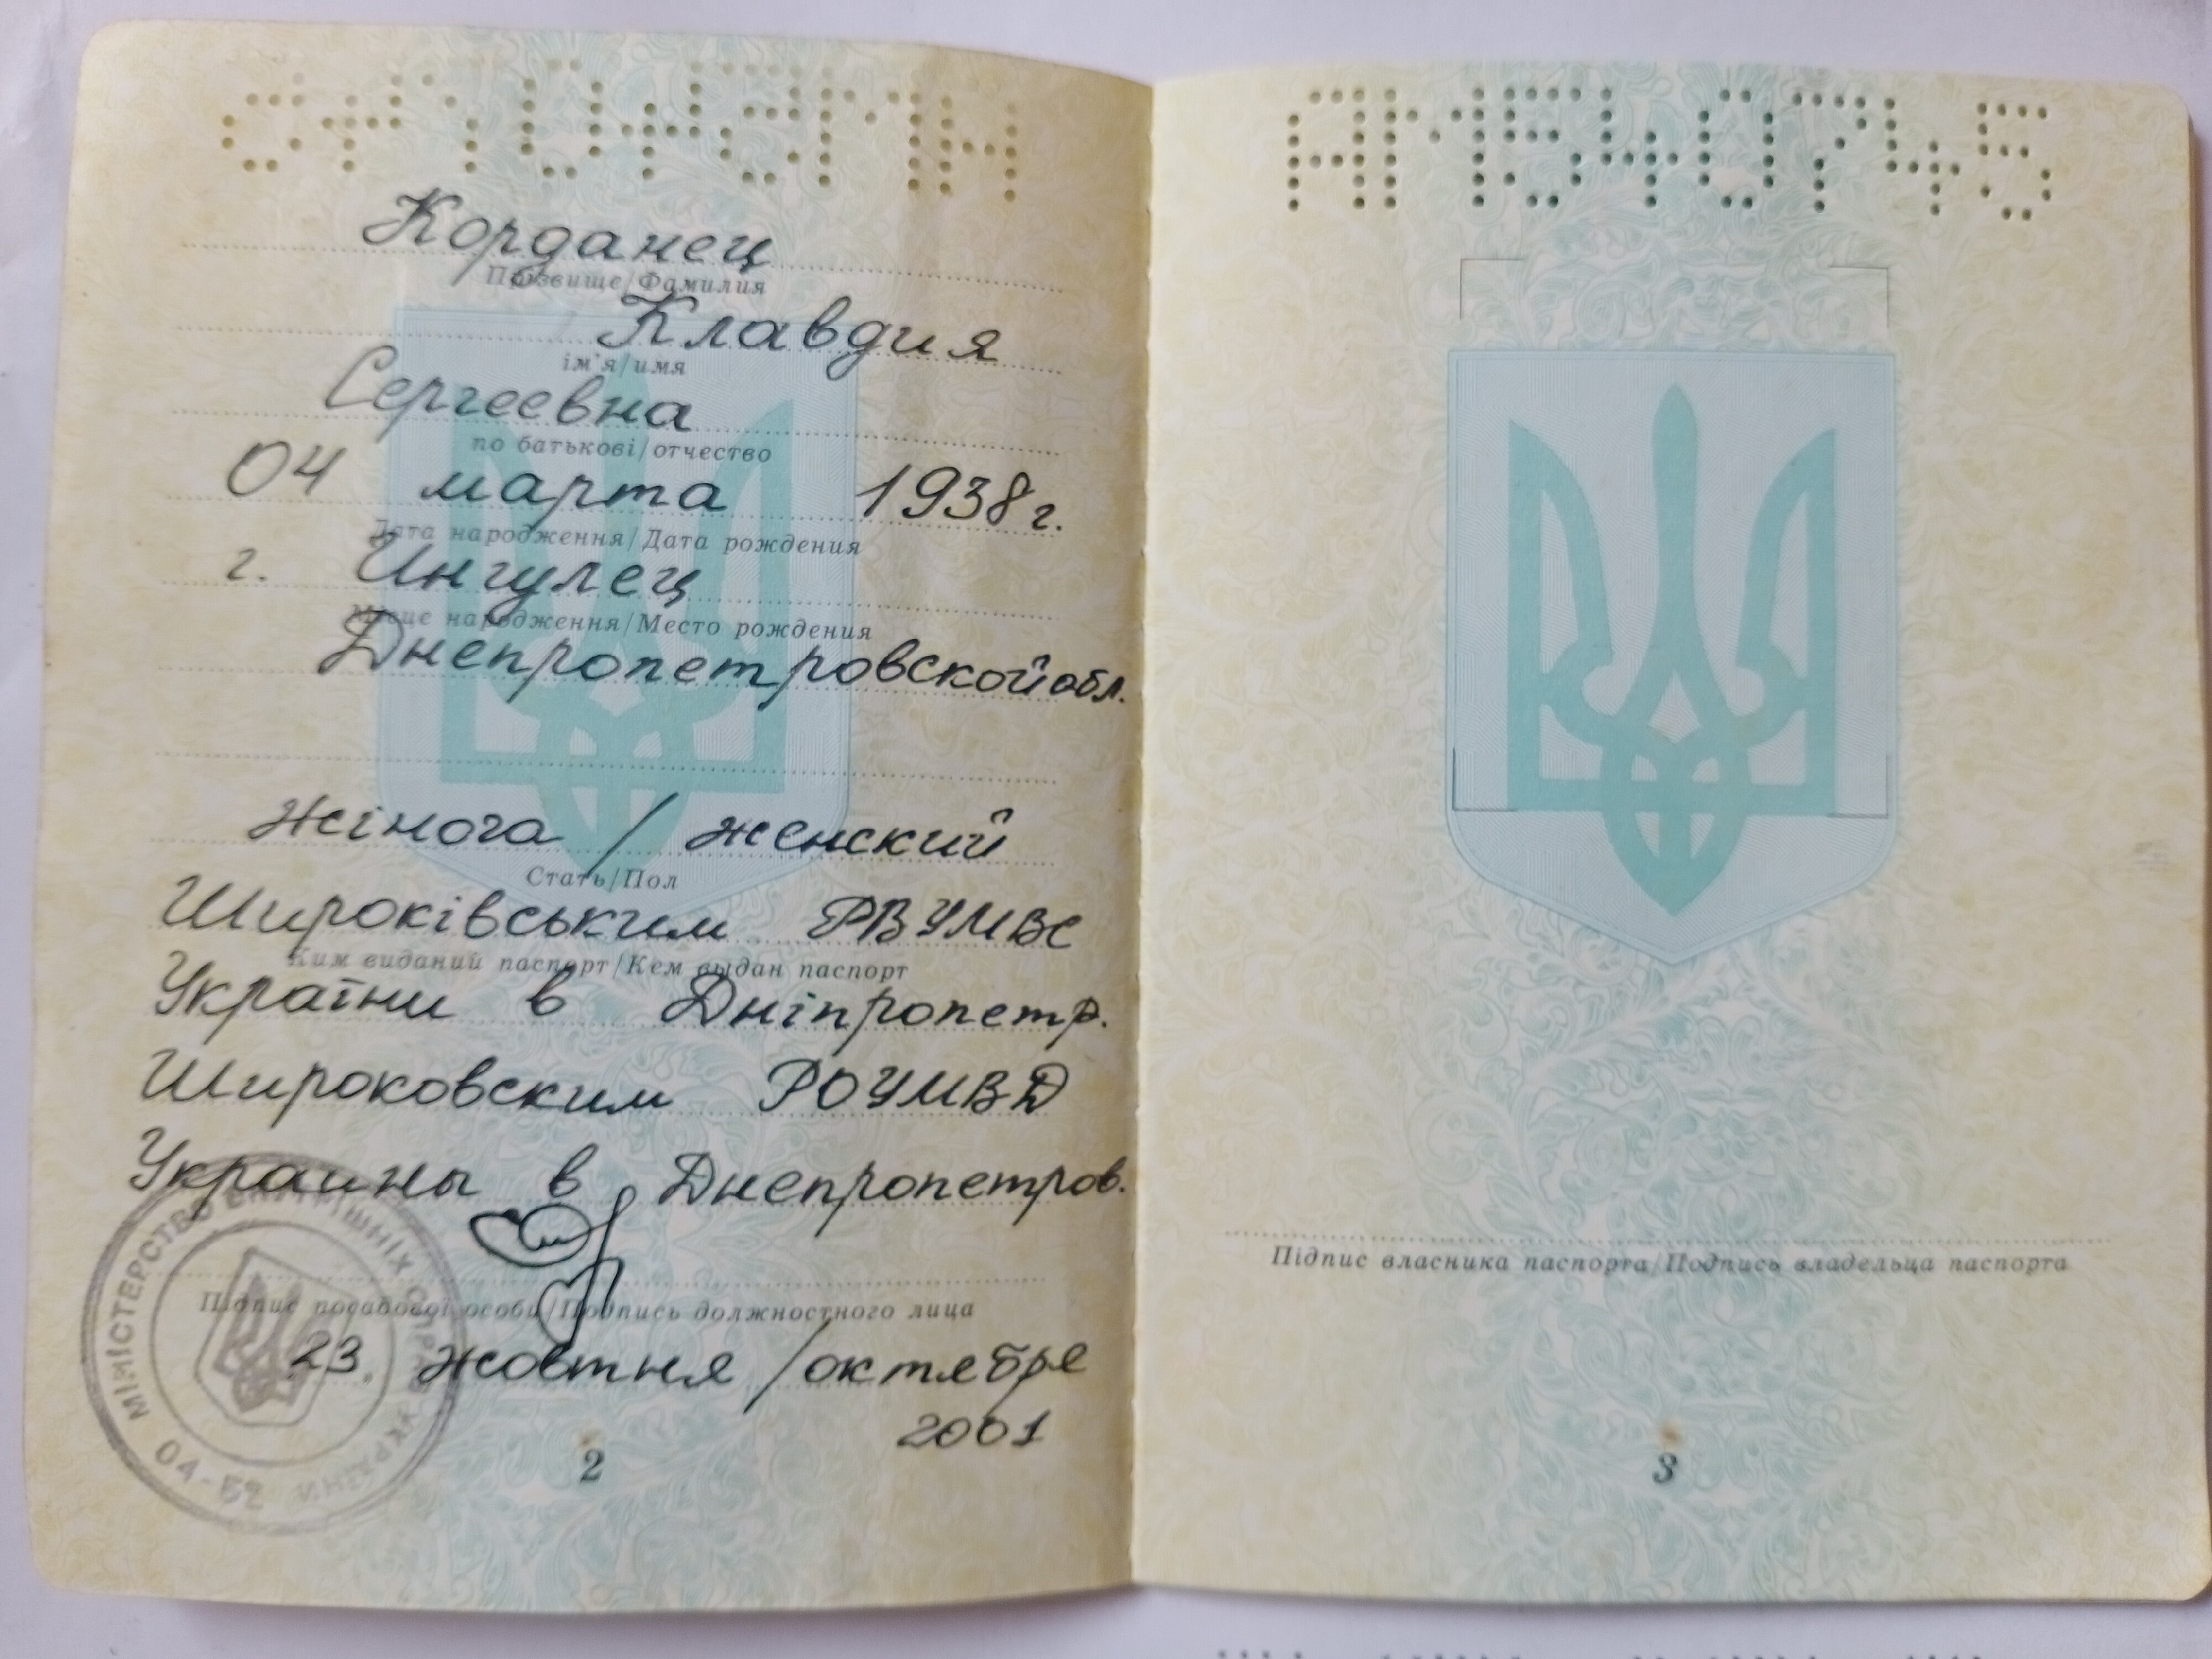 Корданец
Прізвище/Фамилия
Клавдия
ім'я/имя
Сергеевна
по батькові/отчество
04 марта 1938 г.
Дата народження/Дата рождения
г. Ингулец
Місце народження/Место рождения
Днепропетровской обл.
жіноча / женский
Стать/Пол
Широківським РВУМВС
Ким виданий паспорт/Кем выдан паспорт
України в Дніпропетр.
Широковским РОУМВД
Украины в Днепропетров.
Підпис посадової особи/Подпись должностного лица
23. жовтня / октября
2001
МІНІСТЕРСТВО ВНУТРІШНІХ СПРАВ УКРАЇНИ
04-52
2
АМ540745
Підпис власника паспорта/Подпись владельца паспорта
3